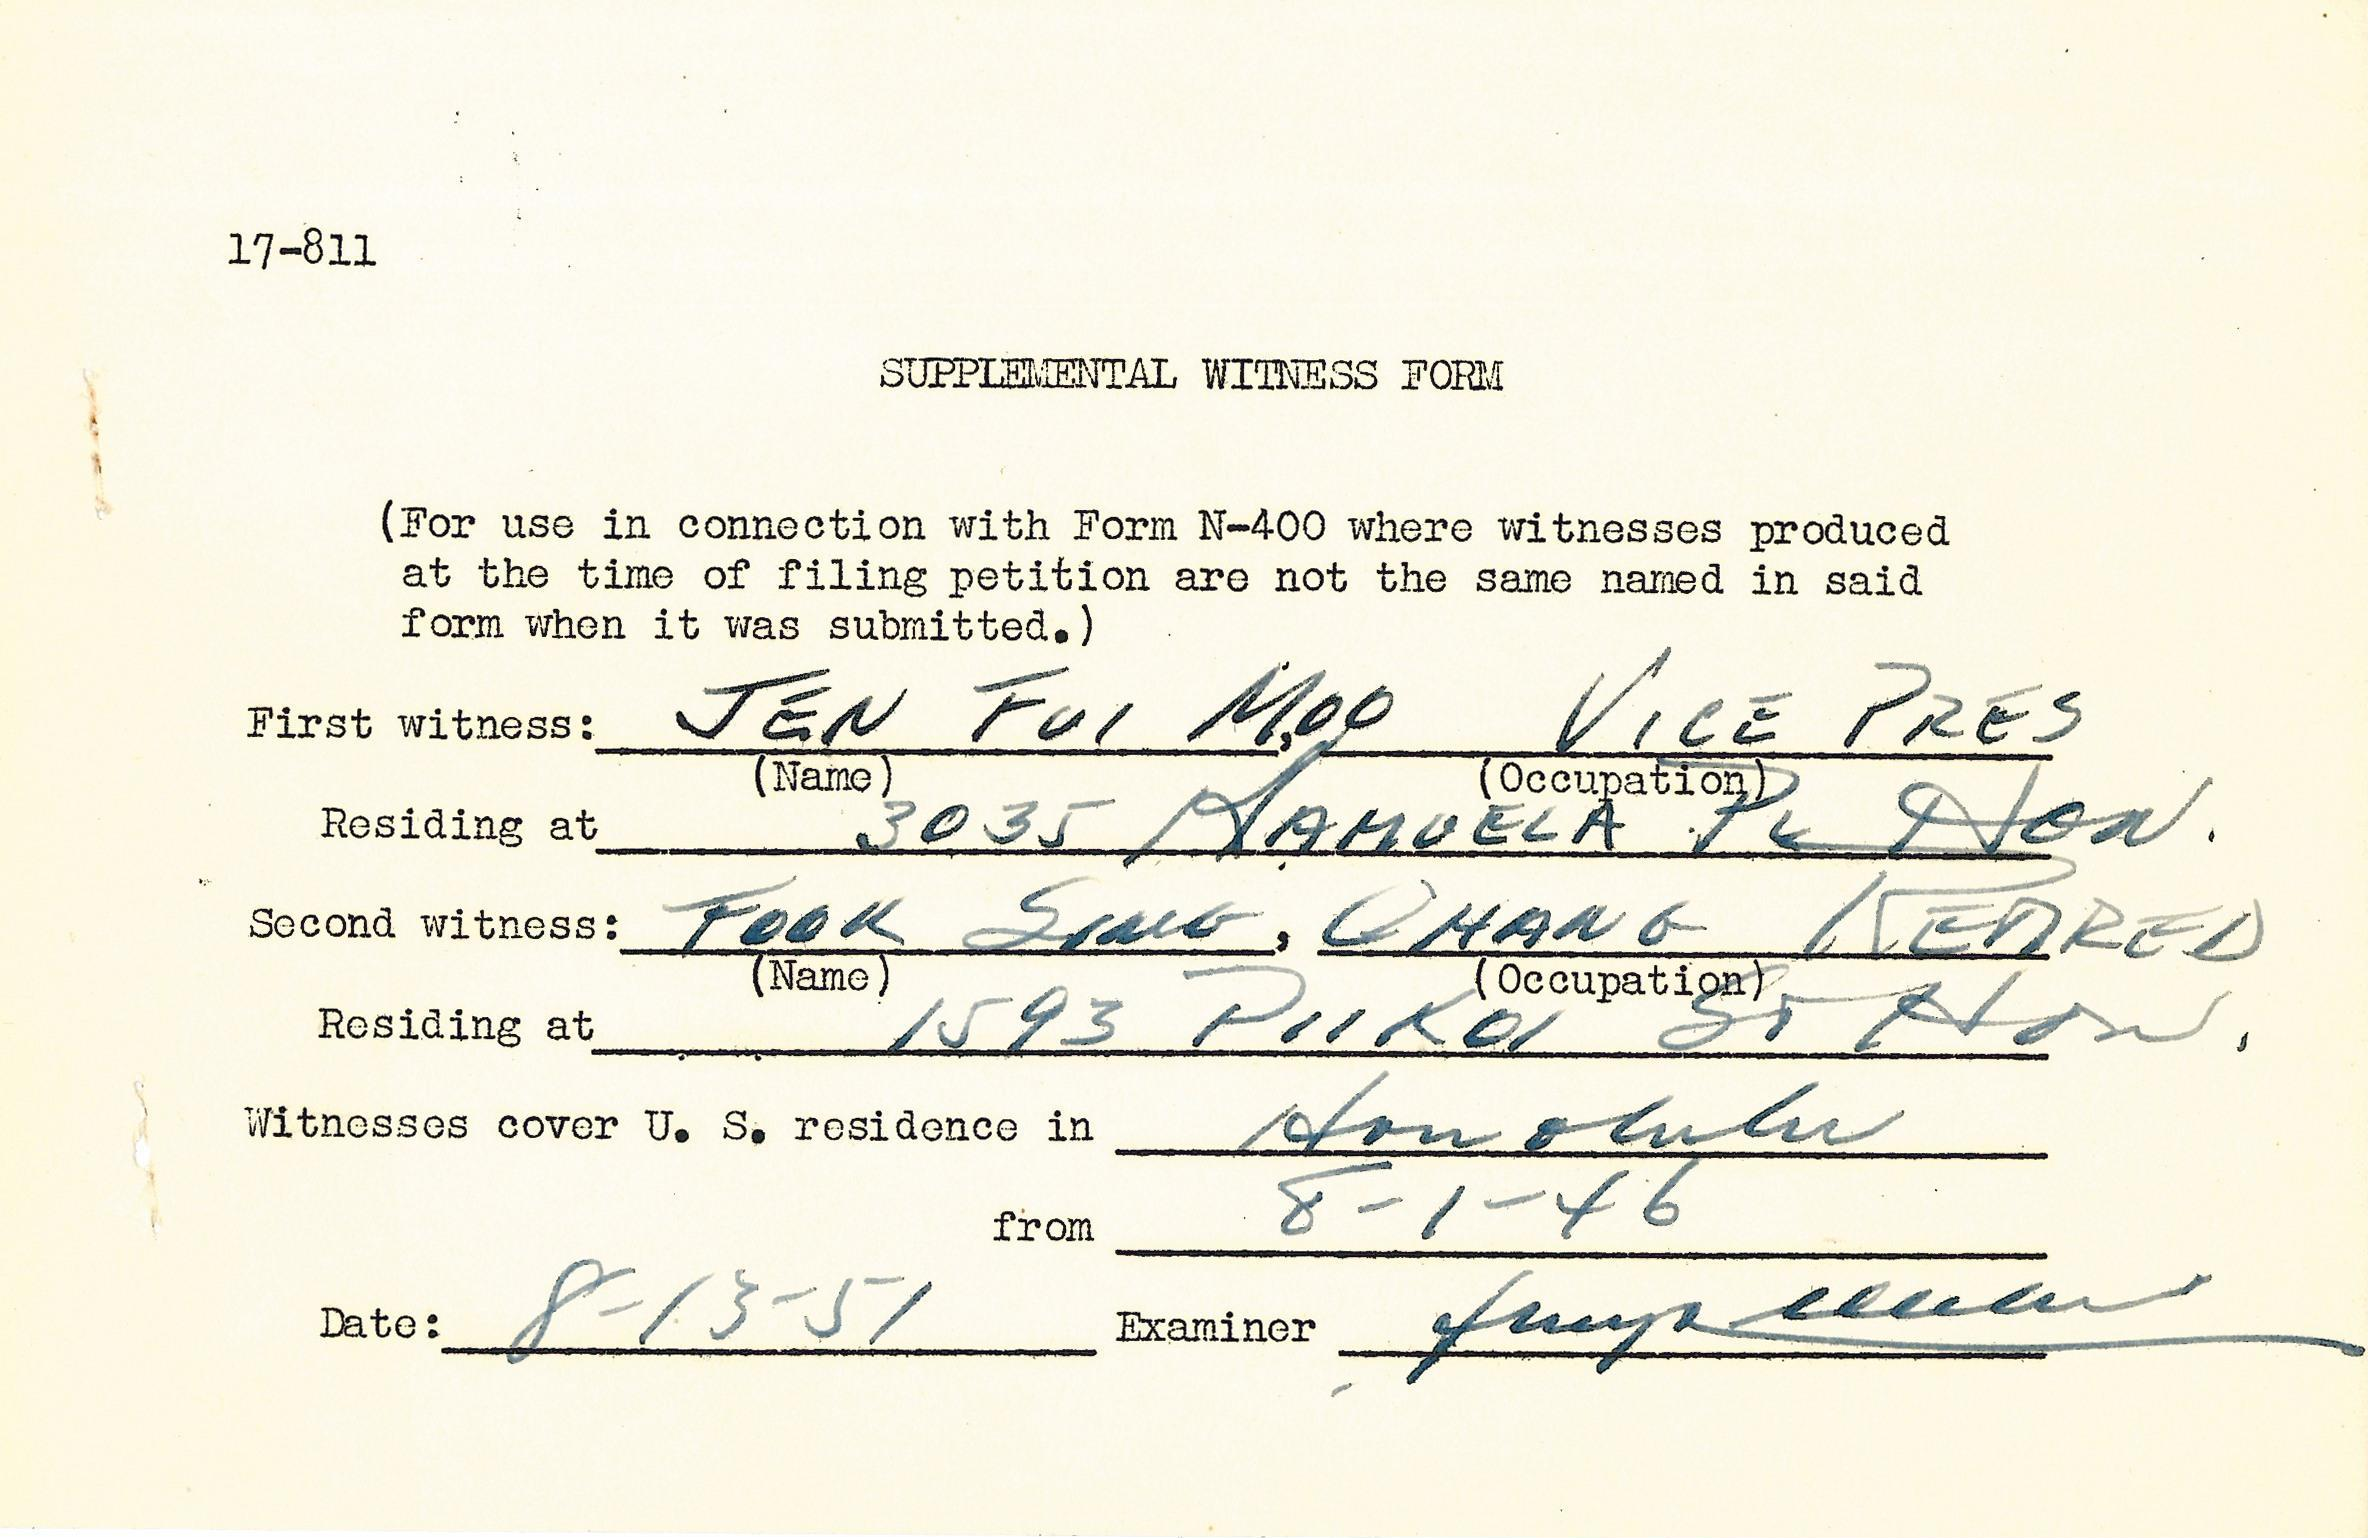 17-811
SUPPLEMENTAL WITNESS FORM
(For use in connection with Form N-400 where witnesses produced
at the time of filing petition are not the same named in said
form when it was submitted.)
First witness: JEN FUI MOO, VICE PRES
(Name) (Occupation)
Residing at 3035 KAMUELA PL HON.
Second witness: FOOK SING, CHANG RETIRED
(Name) (Occupation)
Residing at 1593 PIIKOI ST HON.
Witnesses cover U. S. residence in Honolulu
from 8-1-46
Date: 8-13-51 Examiner